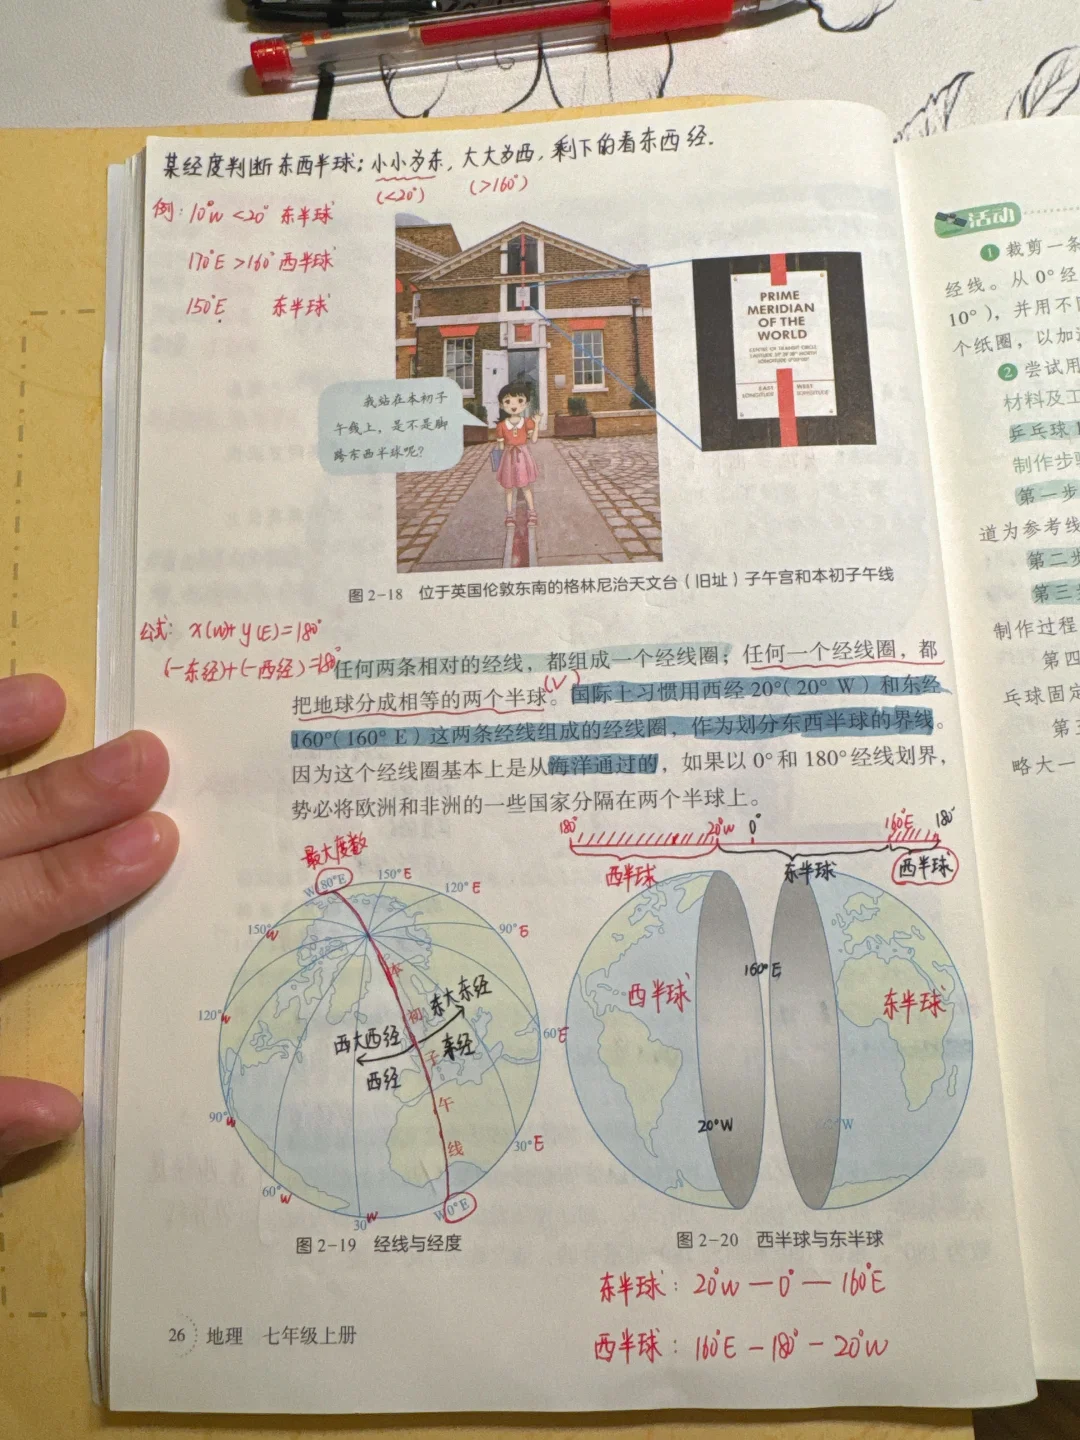 某经度判断东西半球：小小为东，大大为西，剩下的看东西经.
(<20°) (>160°)
例：10°W <20° 东半球
170°E >160° 西半球
150°E 东半球
PRIME
MERIDIAN
OF THE
WORLD
EAST
LONGITUDE
WEST
LONGITUDE
我站在本初子
午线上，是不是脚
跨东西半球呢？
图 2-18 位于英国伦敦东南的格林尼治天文台（旧址）子午宫和本初子午线
公式：x(W)+y(E)=180°
(一东经)+(一西经)=180°
任何两条相对的经线，都组成一个经线圈；任何一个经线圈，都
把地球分成相等的两个半球。(√)国际上习惯用西经 20°（20° W）和东经
160°（160° E）这两条经线组成的经线圈，作为划分东西半球的界线。
因为这个经线圈基本上是从海洋通过的，如果以 0° 和 180° 经线划界，
势必将欧洲和非洲的一些国家分隔在两个半球上。
180° 20°W 0° 160°E 180°
西半球 东半球 西半球
最大度数
W 180°E
150°E
120°E
90°E
60°E
30°E
W 0°E
30°W
60°W
90°W
120°W
150°W
本初子午线
东大东经
东经
西大西经
西经
图 2-19 经线与经度
西半球
160°E
东半球
20°W
图 2-20 西半球与东半球
东半球：20°W — 0° — 160°E
西半球：160°E — 180° — 20°W
26 地理 七年级上册
活动
1 裁剪一条
经线。从 0° 经
10°），并用不同
个纸圈，以加
2 尝试用
材料及工
乒乓球
制作步骤
第一步
道为参考线
第二步
第三步
制作过程
第四
乒球固定
第五
略大一